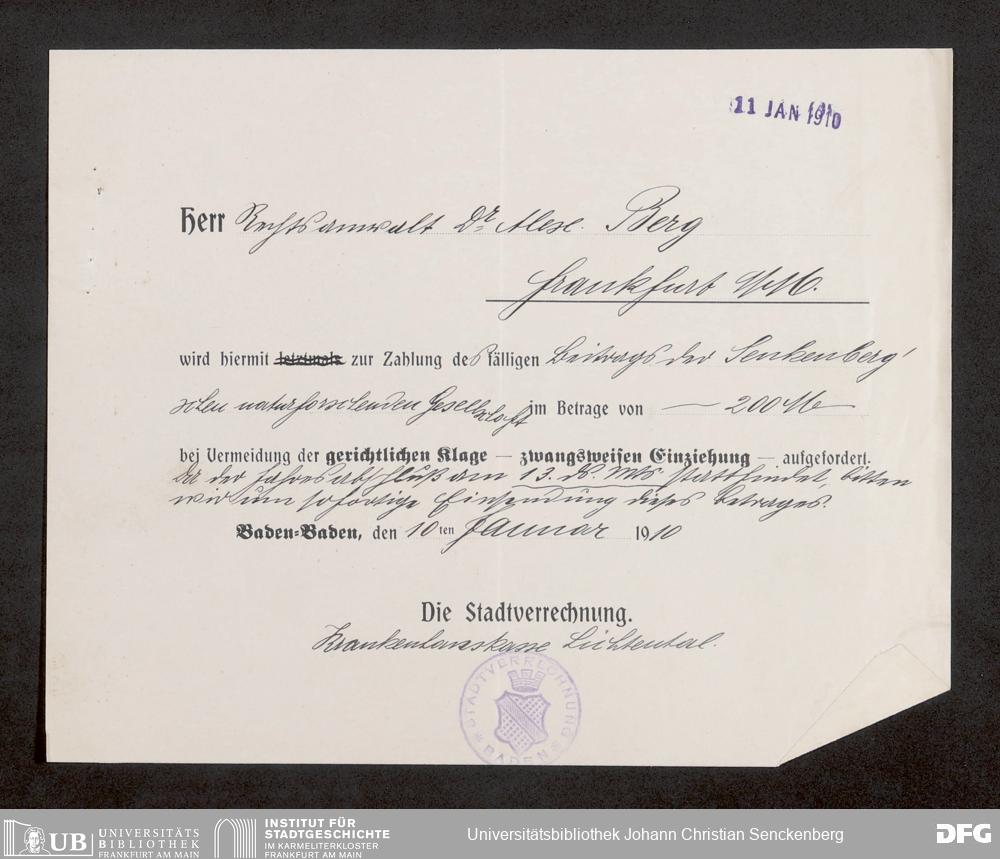 11 JAN 1910
Herr Rechtsanwalt Dr. Alex. Berg
Frankfurt a/M.
wird hiermit letztmals zur Zahlung des fälligen Beitrags der Senkenberg'
schen naturforschenden Gesellschaft im Betrage von — 200 M —
bei Vermeidung der gerichtlichen Klage — zwangsweisen Einziehung — aufgefordert.
Da der Jahresabschluß am 13. ds. Mts. stattfindet, bitten
wir um sofortige Einsendung dieses Betrages.
Baden-Baden, den 10ten Januar 1910
Die Stadtverrechnung.
Krankenhauskasse Lichtental.
STADTVERRECHNUNG
* BADEN *
UB UNIVERSITÄTS
BIBLIOTHEK
FRANKFURT AM MAIN
INSTITUT FÜR
STADTGESCHICHTE
IM KARMELITERKLOSTER
FRANKFURT AM MAIN
Universitätsbibliothek Johann Christian Senckenberg
DFG